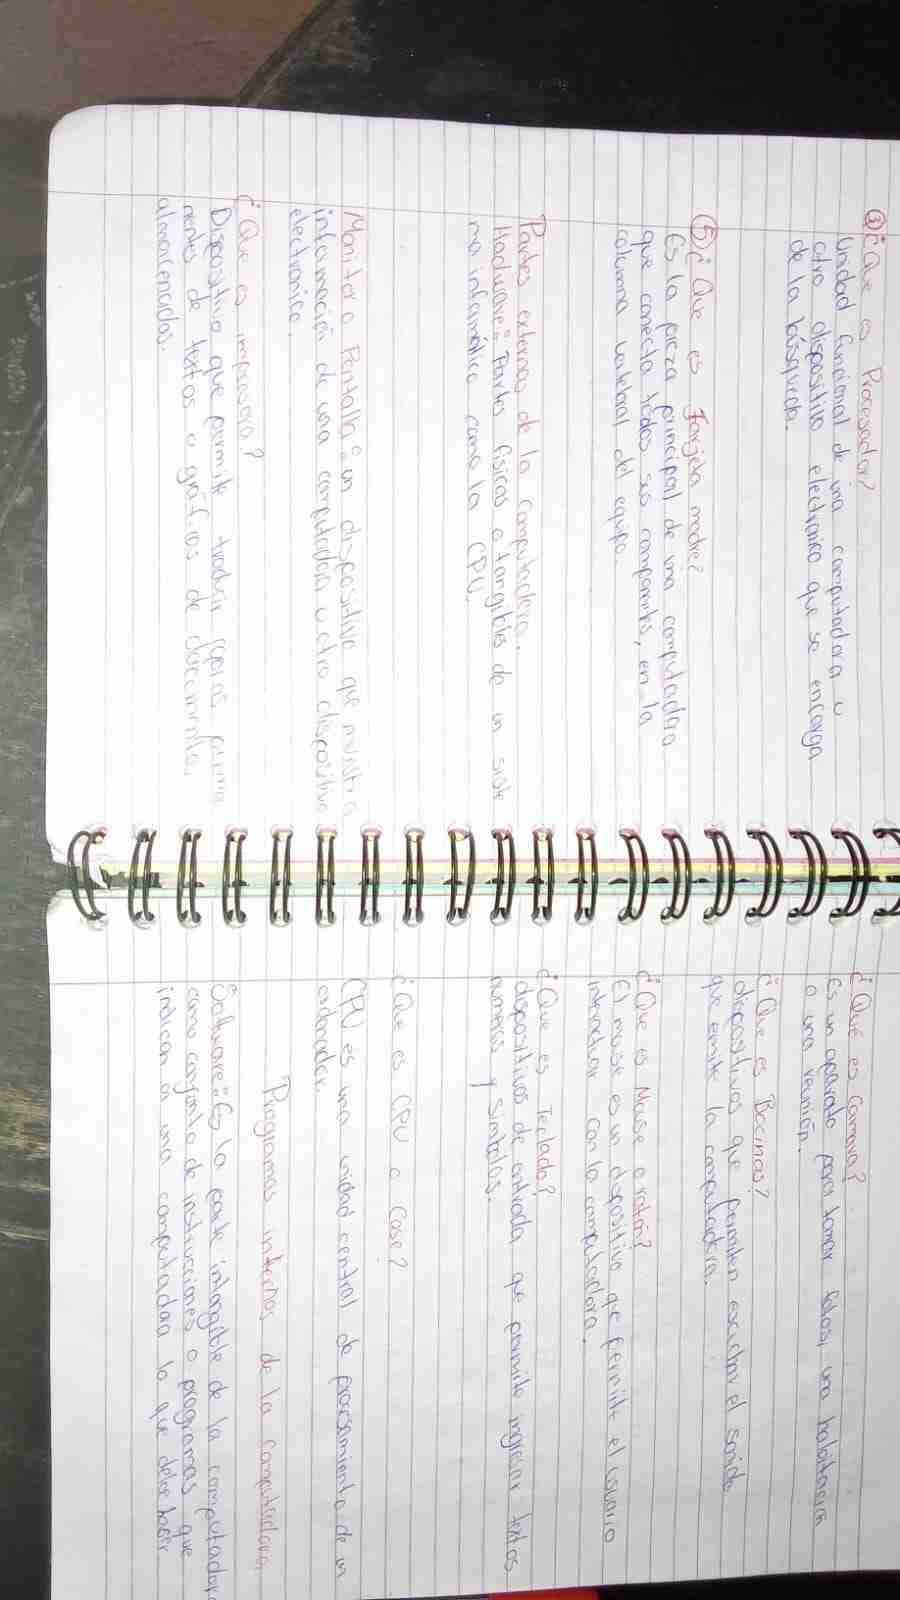 ③¿Que es Procesador?
Unidad funcional de una computadora u
otro dispositivo electronico que se encarga
de la búsqueda.
⑤¿Que es Tarjeta madre?
Es la pieza principal de una computadora
que conecta todos sus componentes, en la
columna vertebral del equipo.
Partes externas de la computadora.
Hadware: Partes físicas o tangibles de un siste
ma informático como la CPU.
Monitor o Pantalla: un dispositivo que muestra
información de una computadora u otro dispositivo
electronico.
¿Que es impresora?
Dispositivo que permite traducir
nentes de textos o gráficos de documentos
almancenados.
¿Qué es camara?
Es un aparato para tomar fotos, una habitación
o una reunión.
¿Que es Bocinas?
dispositivos que permiten escuchar el sonido
que emite la computadora.
¿Que es Mouse o ratón?
El mouse es un dispositivo que permite el usuario
interactuar con la computadora.
¿Que es Teclado?
dispositivos de entrada que permite ingresar textos
numeros y simbolos.
¿Que es CPU o Case?
CPU es una unidad central de procesamiento de un
ordenador.
Programas internos de la computadora
Software: Es la parte intangible de la computadora
como conjunto de instrucciones o programas que
indican a una computadora lo que debe hacer